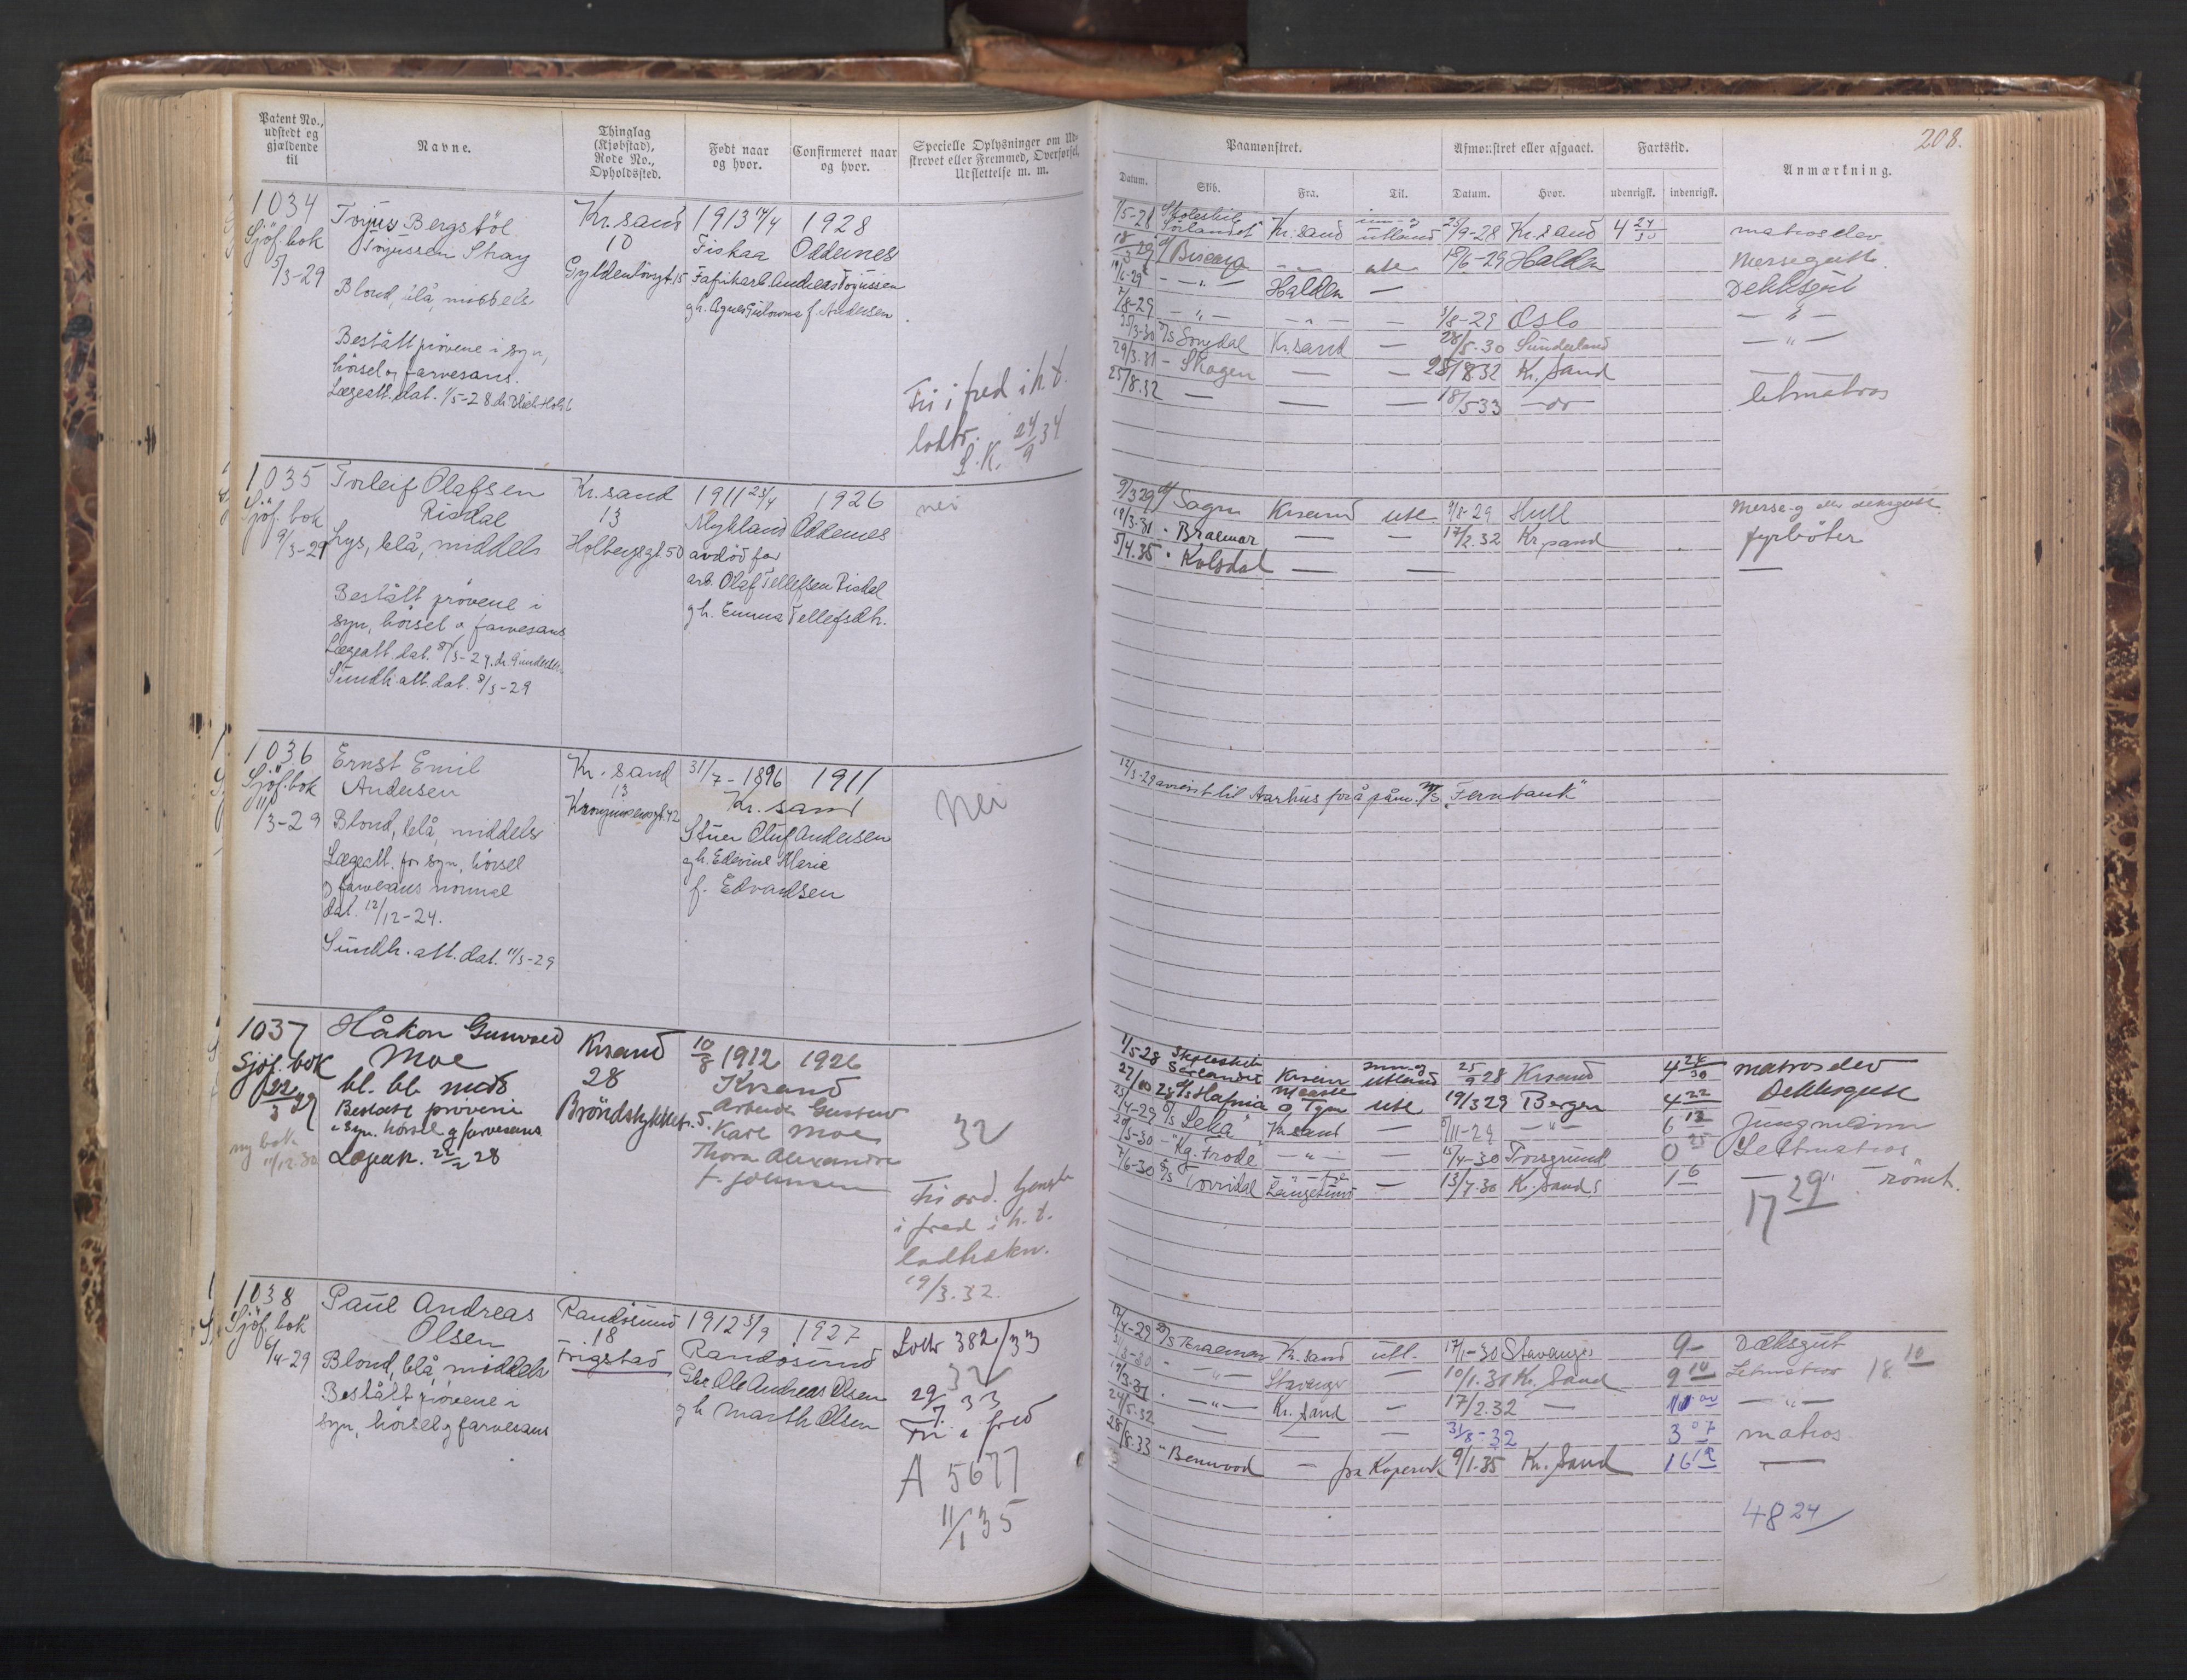 Patent No., udstedt og gjældende til
Navne.
Thinglag (Kjøbstad), Rode No., Opholdssted.
Født naar og hvor.
Confirmeret naar og hvor.
Specielle Oplysninger om Udstrevet eller Fremmed, Overførsel, Udslettelse m. m.
1034
Sjöf. bok
5/3-29
Torjus Bergstöl
Torjussen Stray
Blond, blå, middels
Bestått prövene i syn,
hörsel og farvesans.
Lægeatt. dat. 1/5-28 dr.
Kr.sand
10
Gyldenlövsgt. 15
1913 14/4
Fiskaa
1928
Oddernes
Fabrikarb. Andreas Torjussen
g h. Agnes f. Andersen
Fri i fred i h. t.
lodtr.
S.K. 24/9 34
1035
Sjöf. bok
9/3-29
Torleif Olafsen
Risdal
Lys, blå, middels
Bestått prövene i
syn, hörsel o farvesans
Lægeatt. dat. 8/3-29. dr. Gundersen
Sundh. att. dat. 8/3-29
Kr.sand
13
Holbergsgt. 50
1911 23/4
Mykland
1926
Oddernes
avdöd far
arb. Olaf Tellefsen Risdal
g h. Emma Tellefsdtr.
nei
1036
Sjöf. bok
11/3-29
Ernst Emil
Andersen
Blond, blå, middels
Lægeatt. for syn, hörsel
og farvesans normal
dat. 12/12-24.
Sundh. att. dat. 11/3-29
Kr. sand
13
Kronprinsensgt. 42
31/7-1896
1911
Kr. sand
Stuer Oluf Andersen
g h. Edevine Marie
f. Edvardsen
Nei
1037
Sjöf. bok
22/3 29
ny bok
11/12.30
Håkon Gunvald
Moe
bl. bl. midd
Bestått prövene
i syn. hörsel g farvesans
Lægeatt. 22/2 28
Krsand
28
Bröndstykket. 5.
10/8 1912
1926
Krsand
Arbeider Gustav
Karl Moe
Thora Alexandra
f. Johnsen
32
Fri ord. tjeneste
i fred i h. t.
lodtrekn.
19/3.32.
1038
Sjöf. bok
6/4-29
Paul Andreas
Olsen
Blond, blå, middels
Bestått prövene i
syn, hörsel g farvesans
Randösund
18
Frigstad
1912 5/9
1927
Randösund
Gbr. Ole Andreas Olsen
g h Marth Olsen
Lodtr 382/33
32
29/7.33
Fri i fred
A 5677
11/1 35
208.
Paamønstret.
Afmønstret eller afgaaet.
Fartstid.
Anmærkning.
Datum.
Skib.
Fra.
Til.
Datum.
Hvor.
udenrigsk.
indenrigsk.
1/5-28 Skoleskib Sörlandet Kr.sand inn- og utland 25/9-28 Kr.sand 4 24/30 matroselev
18/3-29 Biscaya — ute 18/6-29 Halden Mersegutt.
19/6-29 — „ — Halden — Dekksgut
7/8-29 — „ — — „ — — 3/8-29 Oslo — „ —
25/3-30 D/S Songdal Kr.sand — 28/5.30 Sunderland — „ —
29/3.31 — Skagen — — 25/8.32 Kr. Sand —
25/8.32 — — — 18/5 33 — do — letmatros
9/3 29 Sagn Krsand ute 9/8-29 Hull Merse-g eller dekksgutt
18/3.31 " Braemar — — 17/2.32 Kr.sand fyrböter
5/4.35 " Kolsdal — — —
12/3-29 anvist til Aarhus for å påm. M/S „Fernbank"
1/5 28 Skoleskib Sörlandet Krsan inn- og utland 25/9 28 Krsand 4 24/30 matroselev
27/10 28 S/s Hafnia o Tyne ute 19/3 29 Bergen 4 22 Dekksgutt
/4-29 D/s Leka Kr.sand — /11-29 — „ — 6 13 Jungmann
20/5-30 — "Kg. Frode — „ — — 15/4-30 Porsgrund 0 25 Letmatros
7/6-30 D/S Torridal Langesund — 13/7.30 K. Sands 1 6 — „ — römt.
17 29
17/4-29 D/S Braemar Kr.sand utl. 17/1-30 Stavanger 9- Dæksgut
— „ — Stavanger — 10/1.31 Kr. Sand 9 10 Letmatros 18 10
19/3.31 — „ — Kr. Sand — 17/2.32 — — „ —
24/5.32 — — — 31/8-32 3 07 matros
28/8.33 " Bennvod — fra Kopervik 9/1.35 Kr. Sand 16 —
48 24